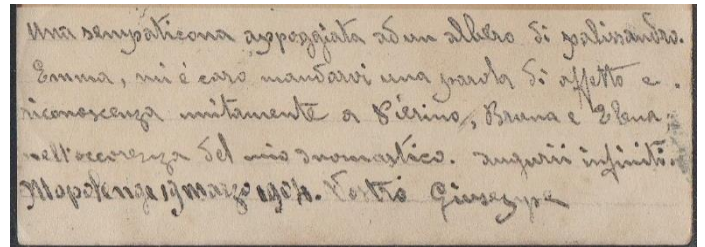 Una sempaticona appoggiata ad un albero di palissandro.
Emma, mi è caro mandarvi una parola di affetto e
riconoscenza unitamente a Pierino, Bruna e Elena
nell'occorenza del mio onomastico. augurii infiniti.
19 marzo 1904. Vostro Giuseppe